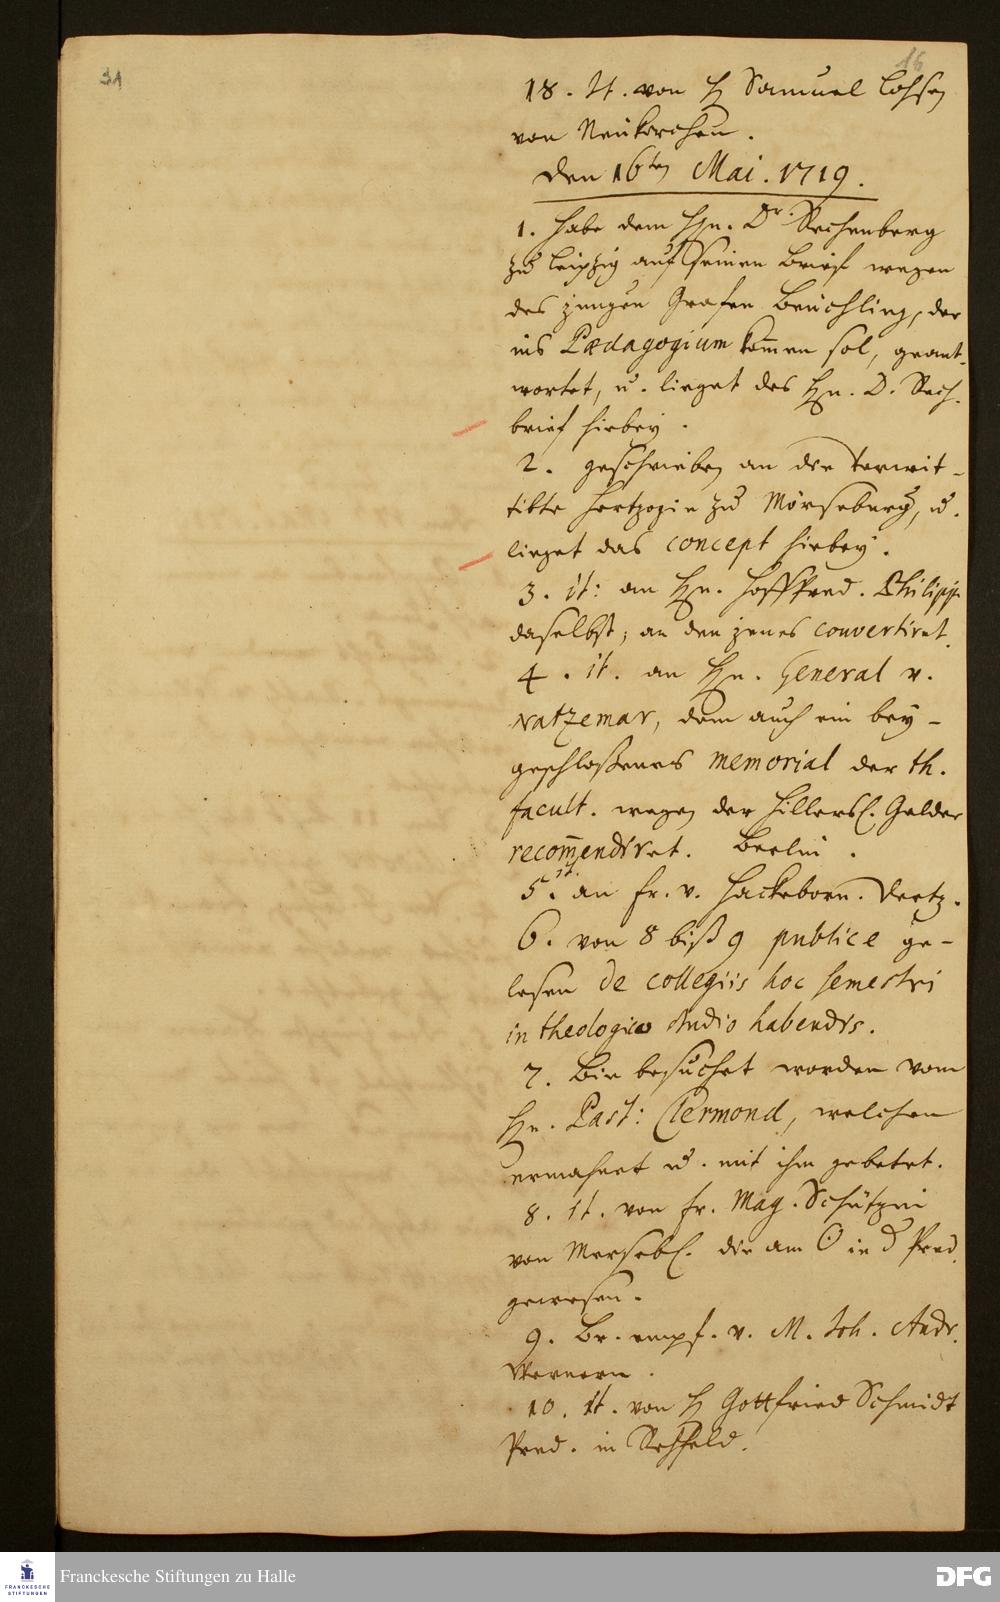 31
16
18. It. von H Samuel Lohsen
von Neukirchen.
den 16ten Mai. 1719.
1. habe dem Hn. Dr. Rechenberg
zu Leipzig auf seinen Brief wegen
des jungen Grafen Beuchling, der
ins Pædagogium kom̅en sol, geant-
wortet, u. lieget des Hn. D. Rech.
brief hiebey.
2. geschrieben an die verwit-
tibte Hertzogin zu Mörseburg, u.
lieget das concept hiebey.
3. it: an Hn. Hoffpred. Philipp.
daselbst, an den jenes couvertiret.
4. it. an Hn. General v.
Natzemar, dem auch ein bey-
geschloßenes memorial der th.
facult. wegen der Hillersl. Gelder
recom̅endiret. Berlin.
5. it. an fr. v. Hackeborn. Deetz.
6. von 8 biß 9 publice ge-
lesen de collegiis hoc semestri
in theologico studio habendis.
7. Bin besuchet worden vom
Hn. Past: Clermond, welchen
ermahnet u. mit ihm gebetet.
8. it. von fr. Mag. Schützin
von Merseb. die am ☉ in d Pred.
gewesen.
9. Br. empf. v. M. Joh. Andr.
Wernern.
10. it. von H Gottfried Schmidt
Pred. in
Franckesche Stiftungen zu Halle
FRANCKESCHE
STIFTUNGEN
DFG